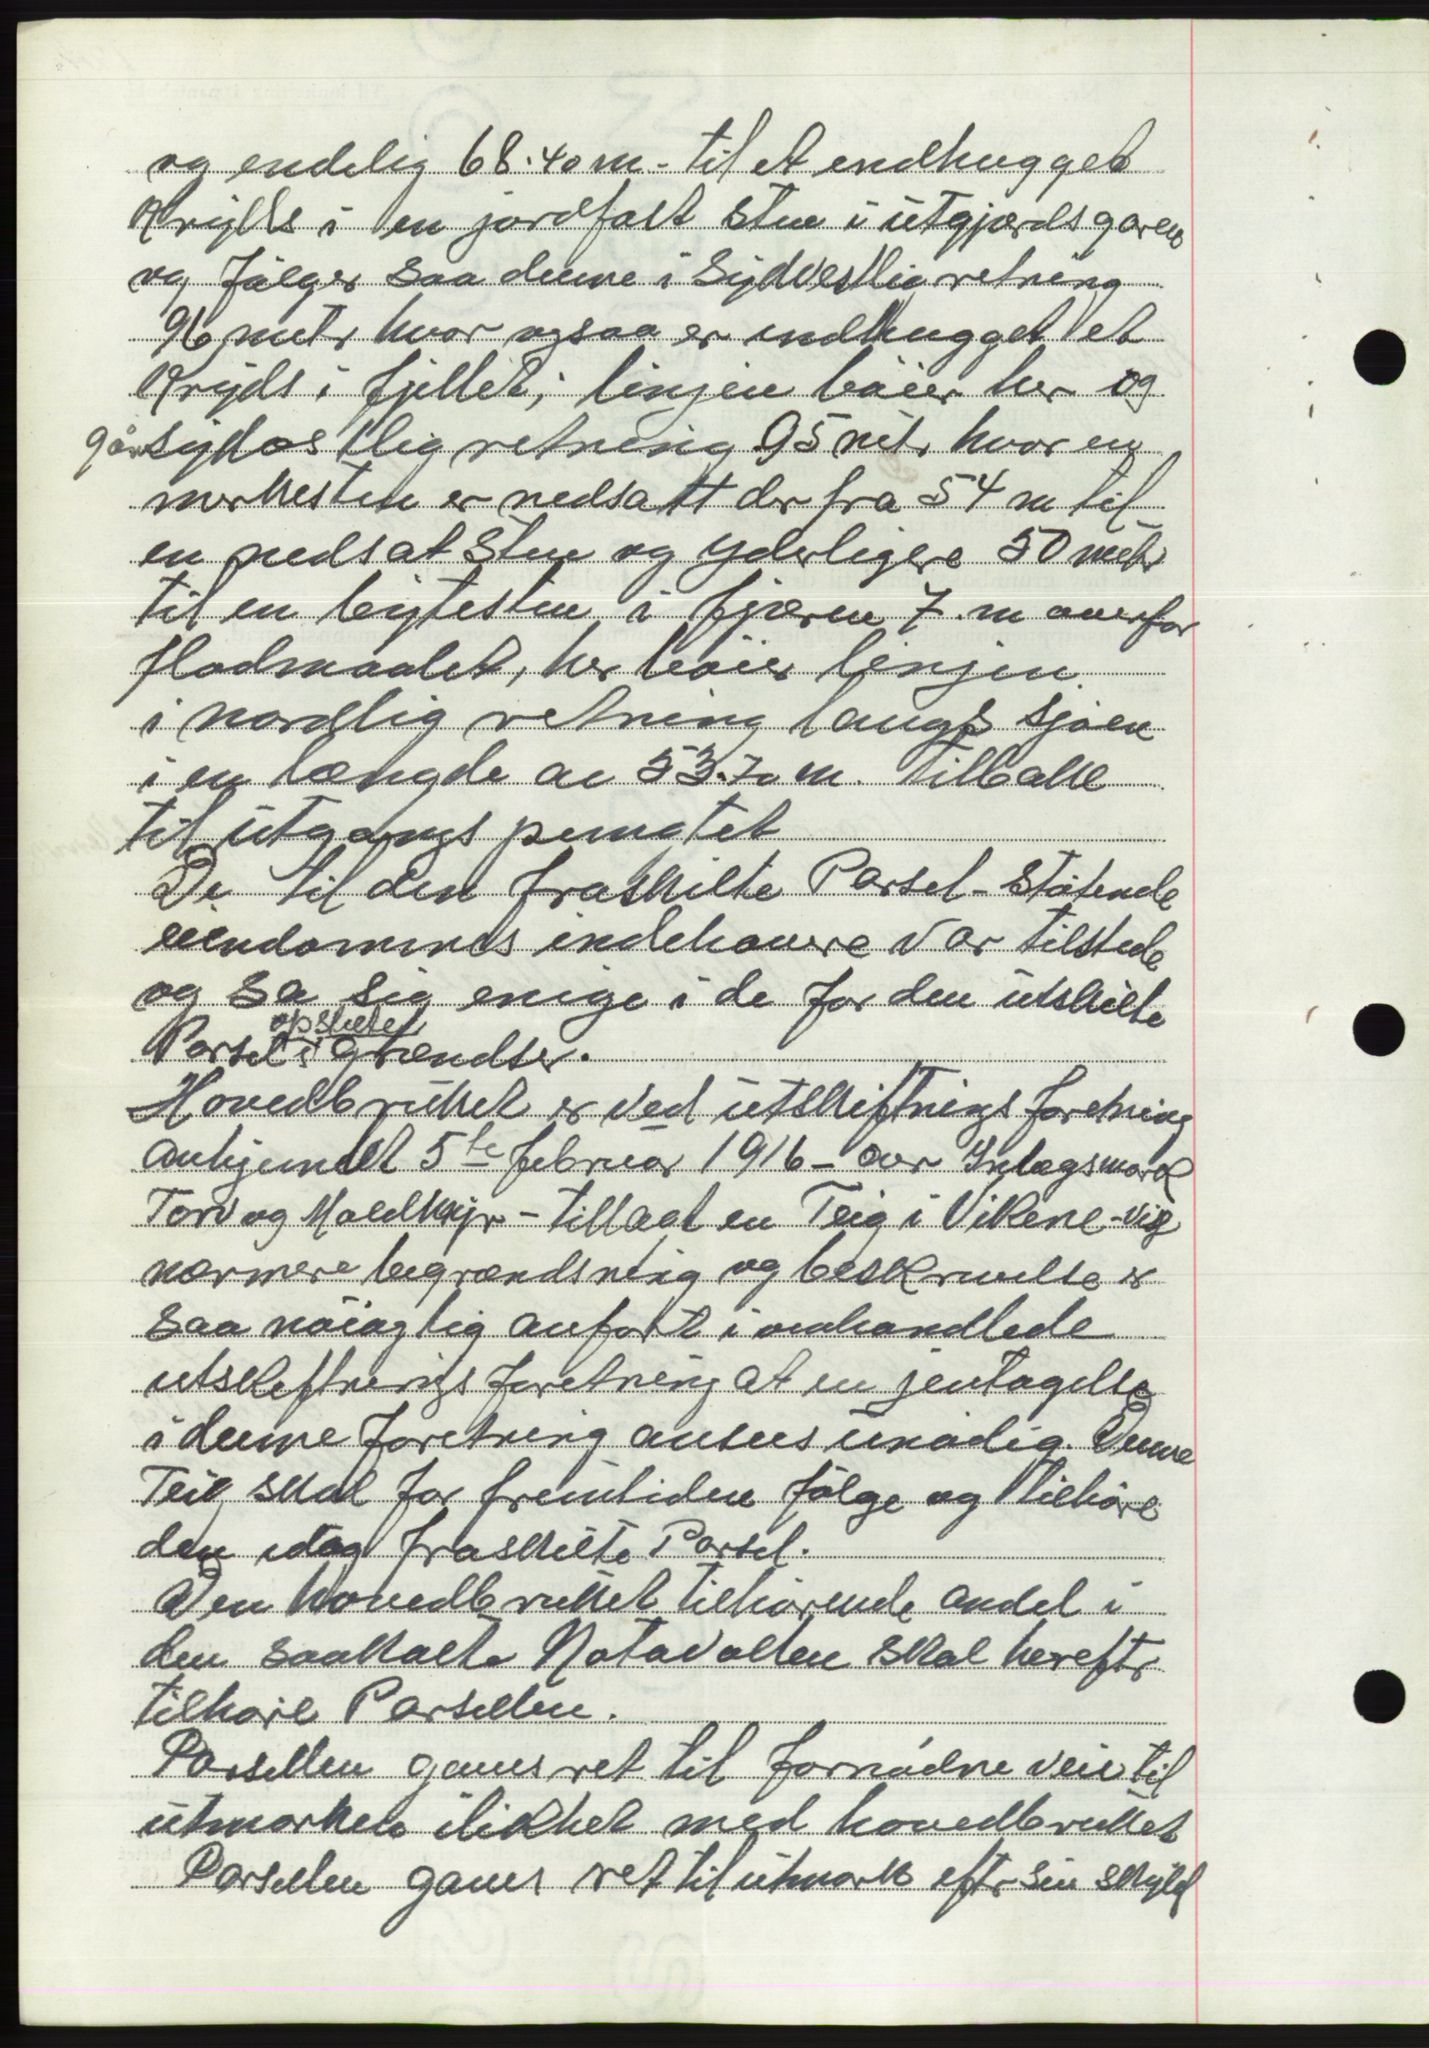 og endelig 68.40 m - til et indhugget
Kryds i en jordfast Sten i utgjærdsgaren
og følger saa denne i Sydvestlig retning
96 metr hvor ogsaa er indhugget et
Kryds i fjellet; linjen bøier her og
går sydostlig retning 95 metr hvor en
merkesten er nedsatt der fra 54 m til
en nedsat Sten og yderligere 50 metr
til en bytesten i fjæren 7 m ovenfor
flodmaalet, her bøier linjen
i nordlig retning langs sjøen
i en længde av 53.70 m. tilbake
til utgangspunktet
De til den fraskilte Parsel - støtende
eiendommes indehavere var tilstede
og sa sig enige i de for den utskilte
Parsel opsatte grændser.
Hovedbruket er ved utskiftnings forretning
avhjemlet 5te februar 1916 - over Indlagsmark
Torv og Moldmyr - tillagt en Teig i Vikene - vis
nærmere begrændsning og beskrivelse er
saa nøiagtig anført i omhandlede
utskiftnings forretning at en jentagelse
i denne forretning ansees unødig. Denne
Teig skal for fremtiden følge og tilhøre
den idag fraskilte Parsel.
Den hovedbruket tilhørende andel i
den saakalte Notavollen skal herefter
tilhøre Parsellen.
Parsellen gives ret til fornødne veie til
utmarken i likhet med hovedbruket
Parsellen gives ret til utmark efter sin skyld